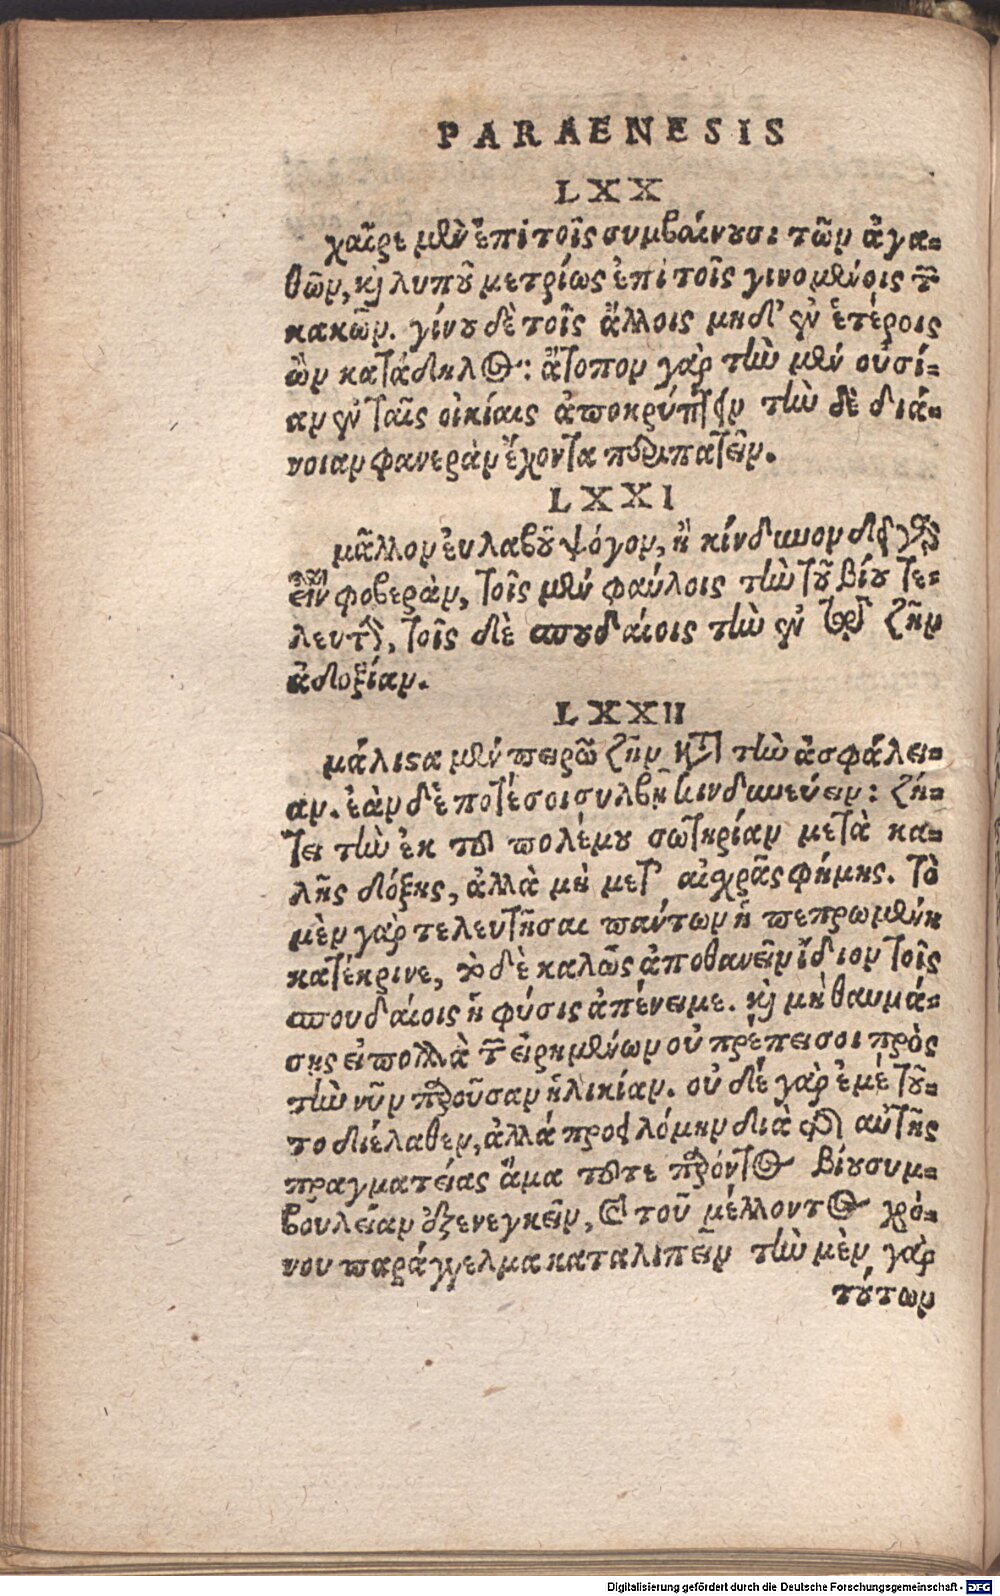 PARAENESIS
LXX
χαῖρε μὲν ἐπὶ τοῖς συμβαίνουσι τῶν ἀγα-
θῶν, καὶ λυποῦ μετρίως ἐπὶ τοῖς γινομένοις τῶν
κακῶν. γίνου δὲ τοῖς ἄλλοις μηδ' ἐν ἑτέροις
ὢν κατάδηλος: ἄτοπον γὰρ τὴν μὲν οὐσί-
αν ἐν ταῖς οἰκίαις ἀποκρύπτειν τὴν δὲ διά-
νοιαν φανερὰν ἔχοντα περιπατεῖν.
LXXI
μᾶλλον εὐλαβοῦ ψόγον, ἢ κίνδυνον δεῖ γὰρ
εἶναι φοβερὰν, τοῖς μὲν φαύλοις τὴν τοῦ βίου τε-
λευτὴν, τοῖς δὲ σπουδαίοις τὴν ἐν τῷ ζῆν
ἀδοξίαν.
LXXII
μάλιστα μὲν πειρῶ ζῆν κατὰ τὴν ἀσφάλει-
αν. ἐὰν δὲ ποτέ σοι συμβῇ κινδυνεύειν: ζή-
τει τὴν ἐκ τοῦ πολέμου σωτηρίαν μετὰ κα-
λῆς δόξης, ἀλλὰ μὴ μετ' αἰσχρᾶς φήμης. τὸ
μὲν γὰρ τελευτῆσαι πάντων ἡ πεπρωμένη
κατέκρινε, τὸ δὲ καλῶς ἀποθανεῖν ἴδιον τοῖς
σπουδαίοις ἡ φύσις ἀπένειμε. καὶ μὴ θαυμά-
σῃς εἰ πολλὰ τῶν εἰρημένων οὐ πρέπει σοι πρὸς
τὴν νῦν παροῦσαν ἡλικίαν. οὐδέ γὰρ ἐμὲ τοῦ-
το διέλαθεν, ἀλλά προειλόμην διὰ τῆς αὐτῆς
πραγματείας ἅμα τοῦ τε παρόντος βίου συμ-
βουλείαν ἐξενεγκεῖν, καὶ τοῦ μέλλοντος χρό-
νου παράγγελμα καταλιπεῖν τὴν μὲν γὰρ
τούτων
Digitalisierung gefördert durch die Deutsche Forschungsgemeinschaft - DFG